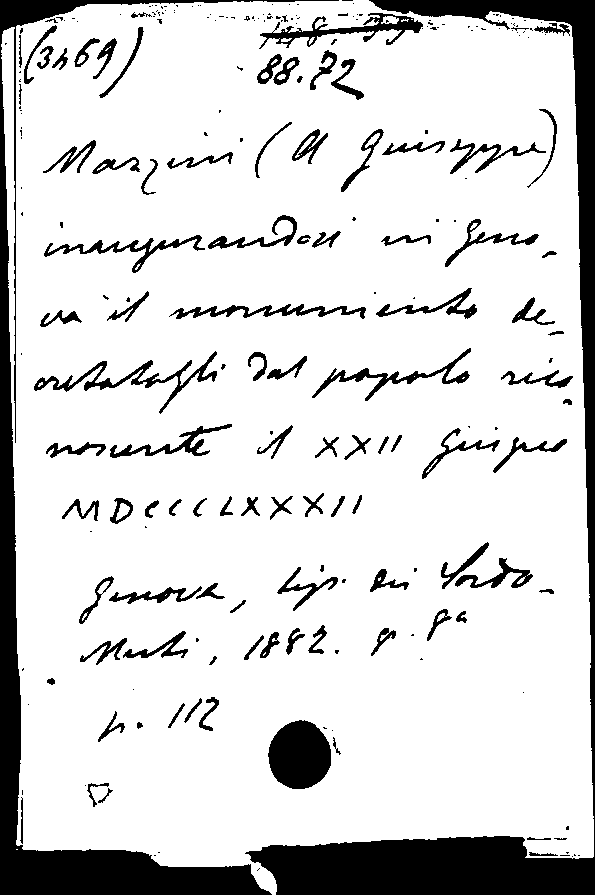 (3469)
88.72
Mazzini (A Giuseppe)
inaugurandosi in Geno-
va il monumento de-
cretatogli dal popolo rico-
noscente il XXII Giugno
MDCCCLXXXII
Genova, tip. dei Sordo-
Muti, 1882. p. 8a
p. 112